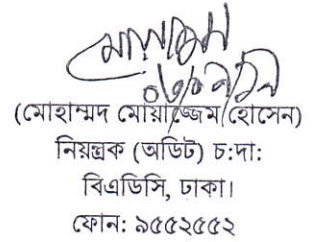 (মোহাম্মদ মোয়াজ্জেম হোসেন)
নিয়ন্ত্রক (অডিট) চ:দা:
বিএডিসি, ঢাকা।
ফোন: ৯৫৫২৫৫২